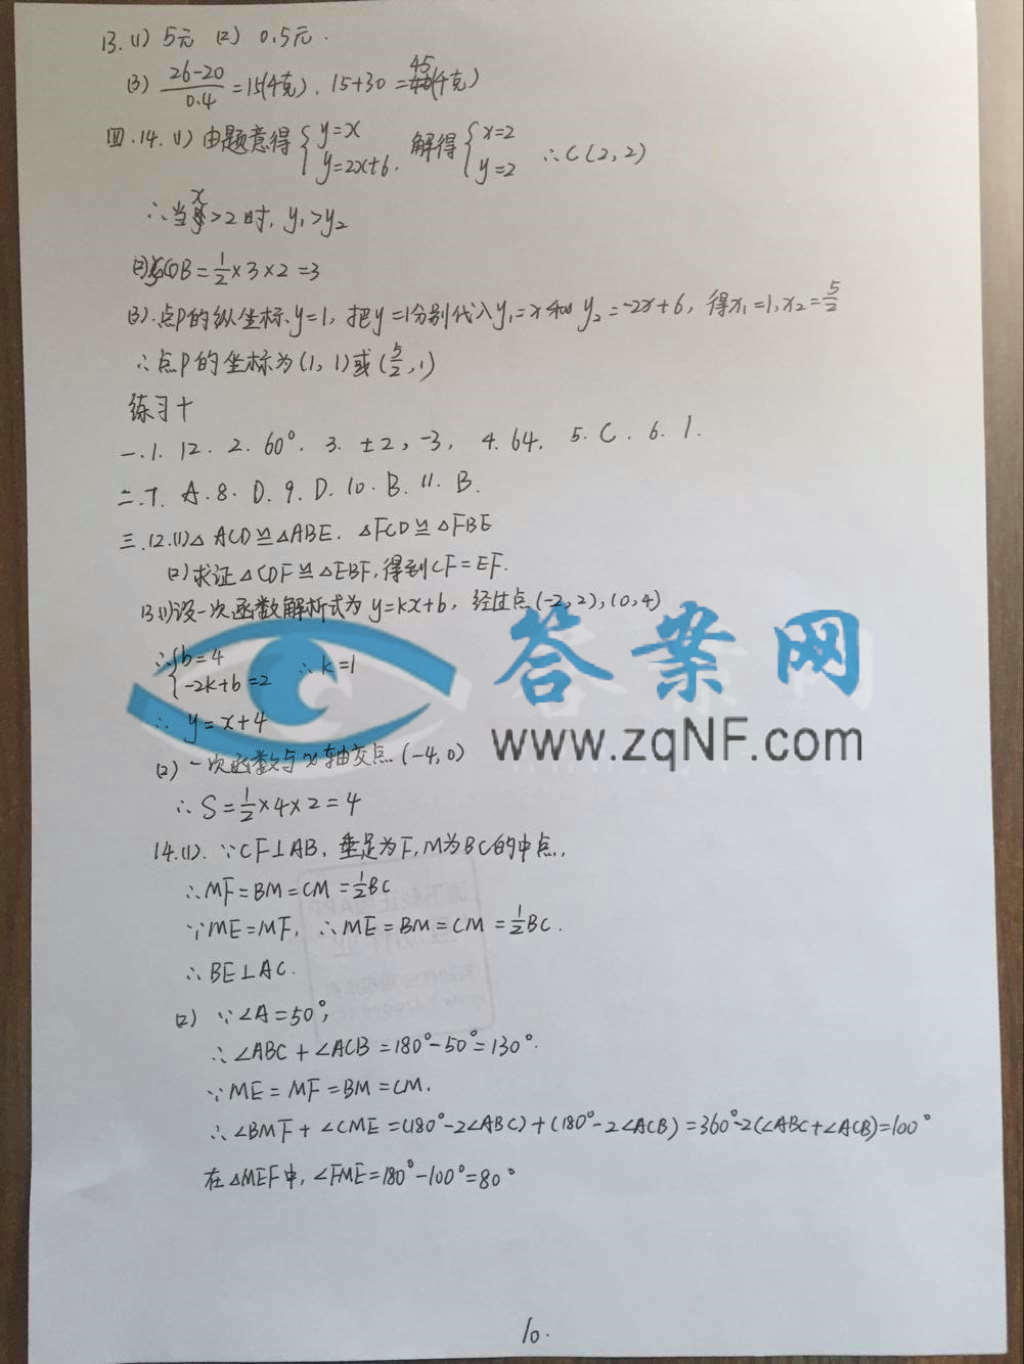 13. (1) 5元 (2) 0.5元.
(3) (26-20)/0.4 = 15(千克). 15+30 = 45(千克)
四.14. (1) 由题意得 { y=x y=2x+6. 解得 { x=2 y=2 ∴C(2,2)
∴当x>2时, y₁>y₂
(2) COB = 1/2 × 3 × 2 = 3
(3). 点P的纵坐标y=1, 把y=1分别代入y₁=x和y₂=-2x+6, 得x₁=1, x₂=5/2
∴点P的坐标为(1, 1)或(5/2, 1)
练习十
一.1. 12. 2. 60°. 3. ±2, -3, 4. 64. 5. C. 6. 1.
二.7. A. 8. D. 9. D. 10. B. 11. B.
三.12.(1)△ACD≌△ABE. △FCD≌△FBE
(2)求证△CDF≌△EBF, 得到CF=EF.
13(1)设一次函数解析式为y=kx+b, 经过点(-2,2),(0,4)
∴{ b=4 -2k+b=2 ∴k=1
∴ y=x+4
(2) 一次函数与x轴交点(-4,0)
∴ S=1/2×4×2=4
14.(1). ∵CF⊥AB, 垂足为F, M为BC的中点,
∴MF=BM=CM=1/2BC
∵ME=MF, ∴ME=BM=CM=1/2BC.
∴BE⊥AC.
(2) ∵∠A=50°,
∴∠ABC+∠ACB=180°-50°=130°.
∵ME=MF=BM=CM.
∴∠BMF+∠CME=(180°-2∠ABC)+(180°-2∠ACB)=360°-2(∠ABC+∠ACB)=100°
在△MEF中, ∠FME=180°-100°=80°
10.
答案网
www.zqNF.com